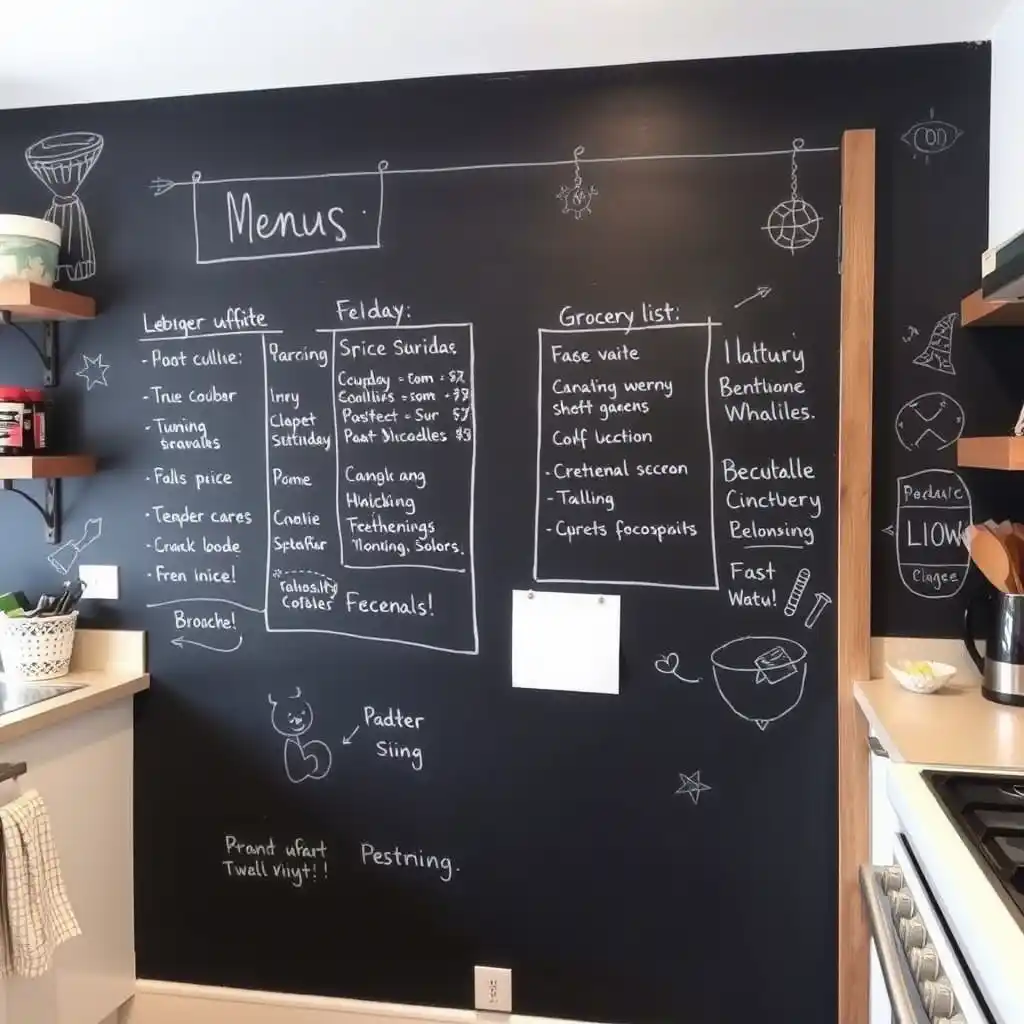 Menus
Lebiger uffite
- Poot cullie:
- True coubor
- Tuning
sravales
- Falls price
- Tender cares
- Crark loode
- Fren inice!
Broache!
Parcing
Inry
Clapet
Sistuiday
Pome
Cnolie
Cotbler
Felday:
Srice Suridas
Pastect = Sur
Cangk ang
Hnlcking
Fcethenings
Tlonting, Solors.
Fecenals!
Grocery list:
Fase vaite
Canating werny
shoft gaens
Coif Uection
- Cretienal sccron
- Talling
- Cyrets focospaits
Ilattury
Bentlone
Whaliles.
Becutalle
Cinctuery
Belonsing
Fast
Watu!
COD
LIOW
Clagee
Padter
Siing
Prand ufart
Twall Viiyt!!
Pestrning.